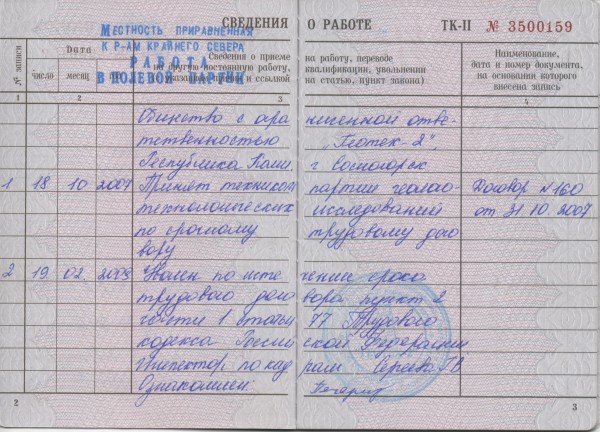 СВЕДЕНИЯ О РАБОТЕ ТК-II № 3500159
МЕСТНОСТЬ ПРИРАВНЕННАЯ
К Р-АМ КРАЙНЕГО СЕВЕРА
РАБОТА
В ПОЛЕВОЙ ПАРТИИ
№ записи
Дата
число
месяц
Сведения о приеме на работу, переводе
на другую постоянную работу, квалификации, увольнении
и ссылкой на статью, пункт закона)
Наименование,
дата и номер документа,
на основании которого
внесена запись
1 3 4
Общество с огра ниченной отве-
тственностью „Геотех-2",
Республика Коми. г Сосногорск
1 18 10 2007 Принят техником партии геолого- Договор N 160
технологических исследований от 31.10.2007
по срочному трудовому дого
вору
2 19 02 Уволен по исте чении срока
трудового дого вора пункт 2
части 1 статьи 77 Трудового
кодекса России ской Федерации
Инспектор по кад рам
Ознакомлен:
2 3